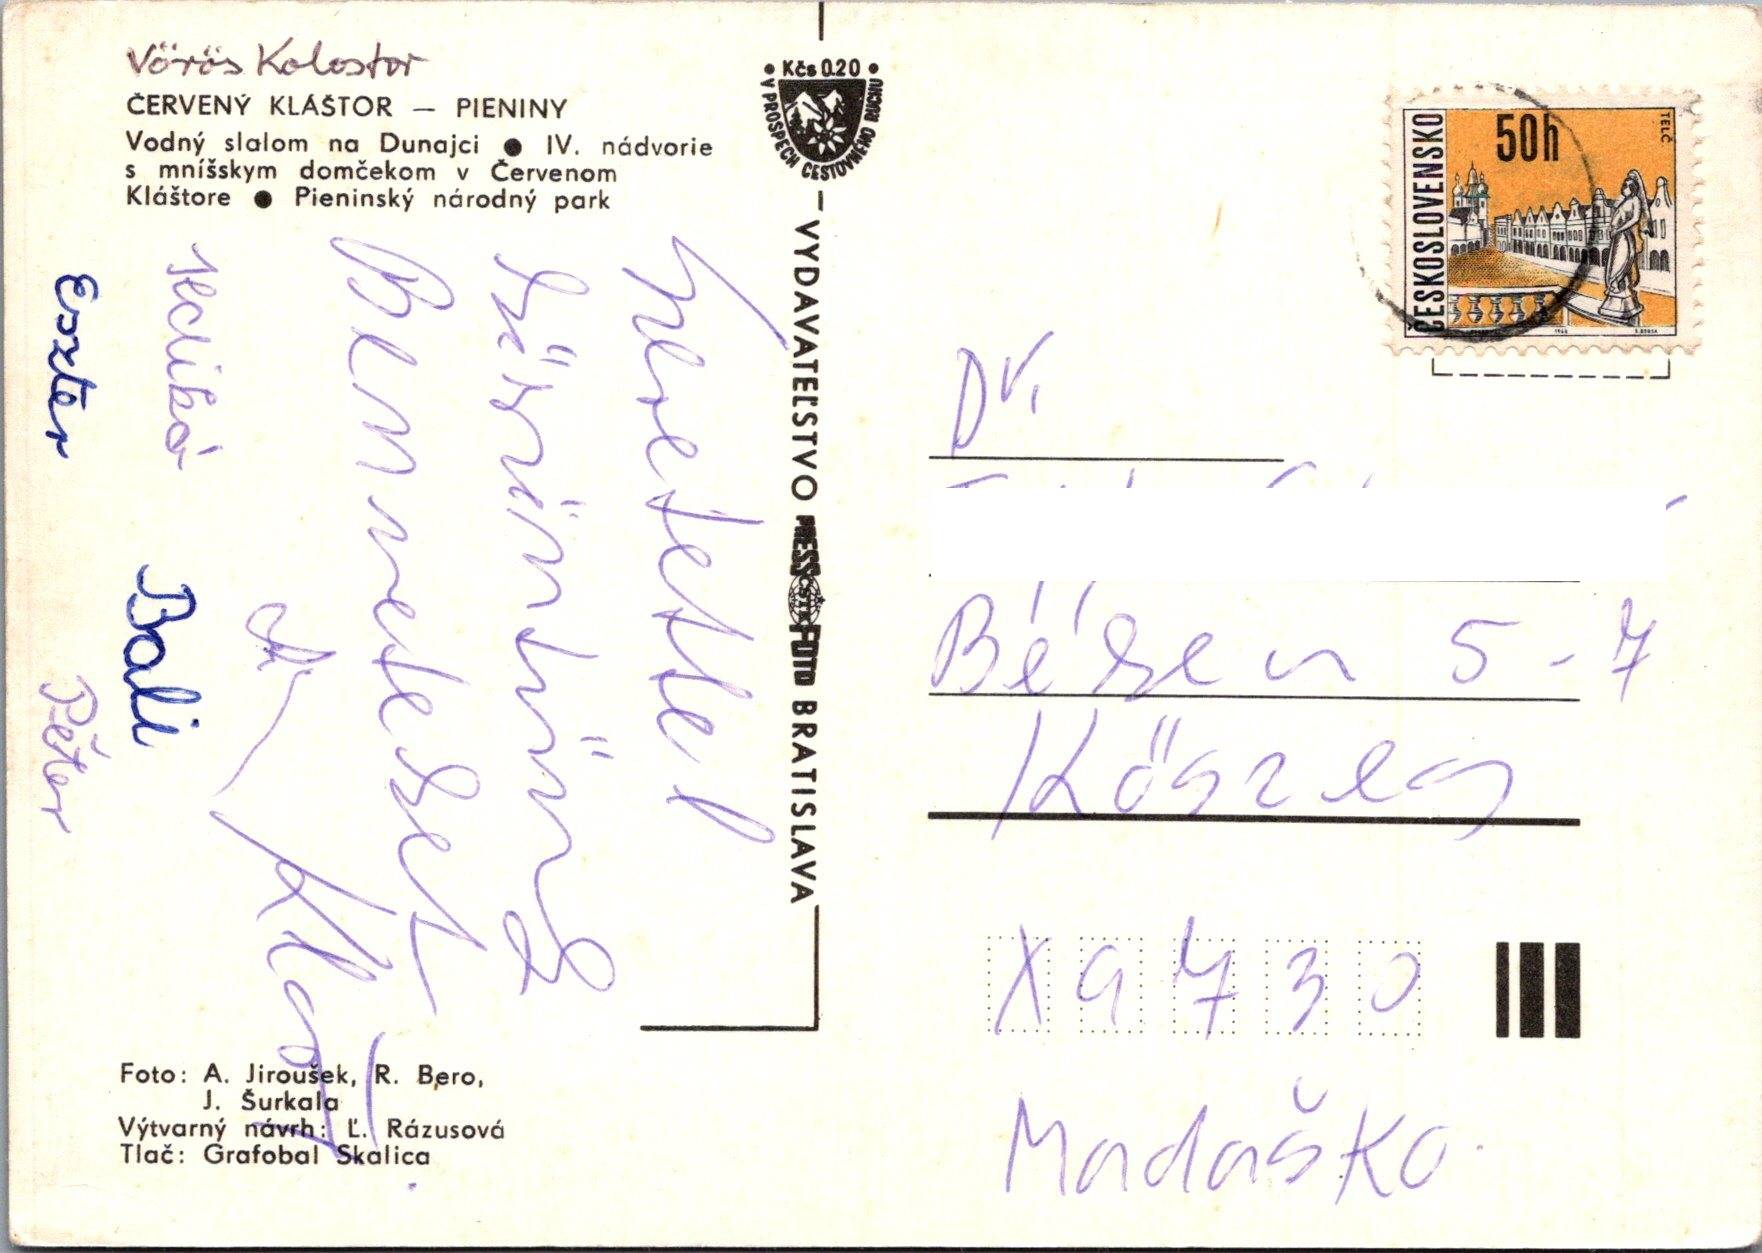 Vörös Kolostor
ČERVENÝ KLÁŠTOR — PIENINY
Vodný slalom na Dunajci ● IV. nádvorie
s mníšskym domčekom v Červenom
Kláštore ● Pieninský národný park
Szeretettel
köszöntünk
Benneteket
Ildikó
Eszter
Bali
Péter
• Kčs 0.20 •
V PROSPECH CESTOVNÉHO RUCHU
VYDAVATEĽSTVO PRESSFOTO BRATISLAVA
ČSTK
ČESKOSLOVENSKO
50h
TELČ
Dr.
5-7
Kőszeg
X9730
Madaŝko.
Foto: A. Jiroušek, R. Bero,
J. Šurkala
Výtvarný návrh: Ľ. Rázusová
Tlač: Grafobal Skalica